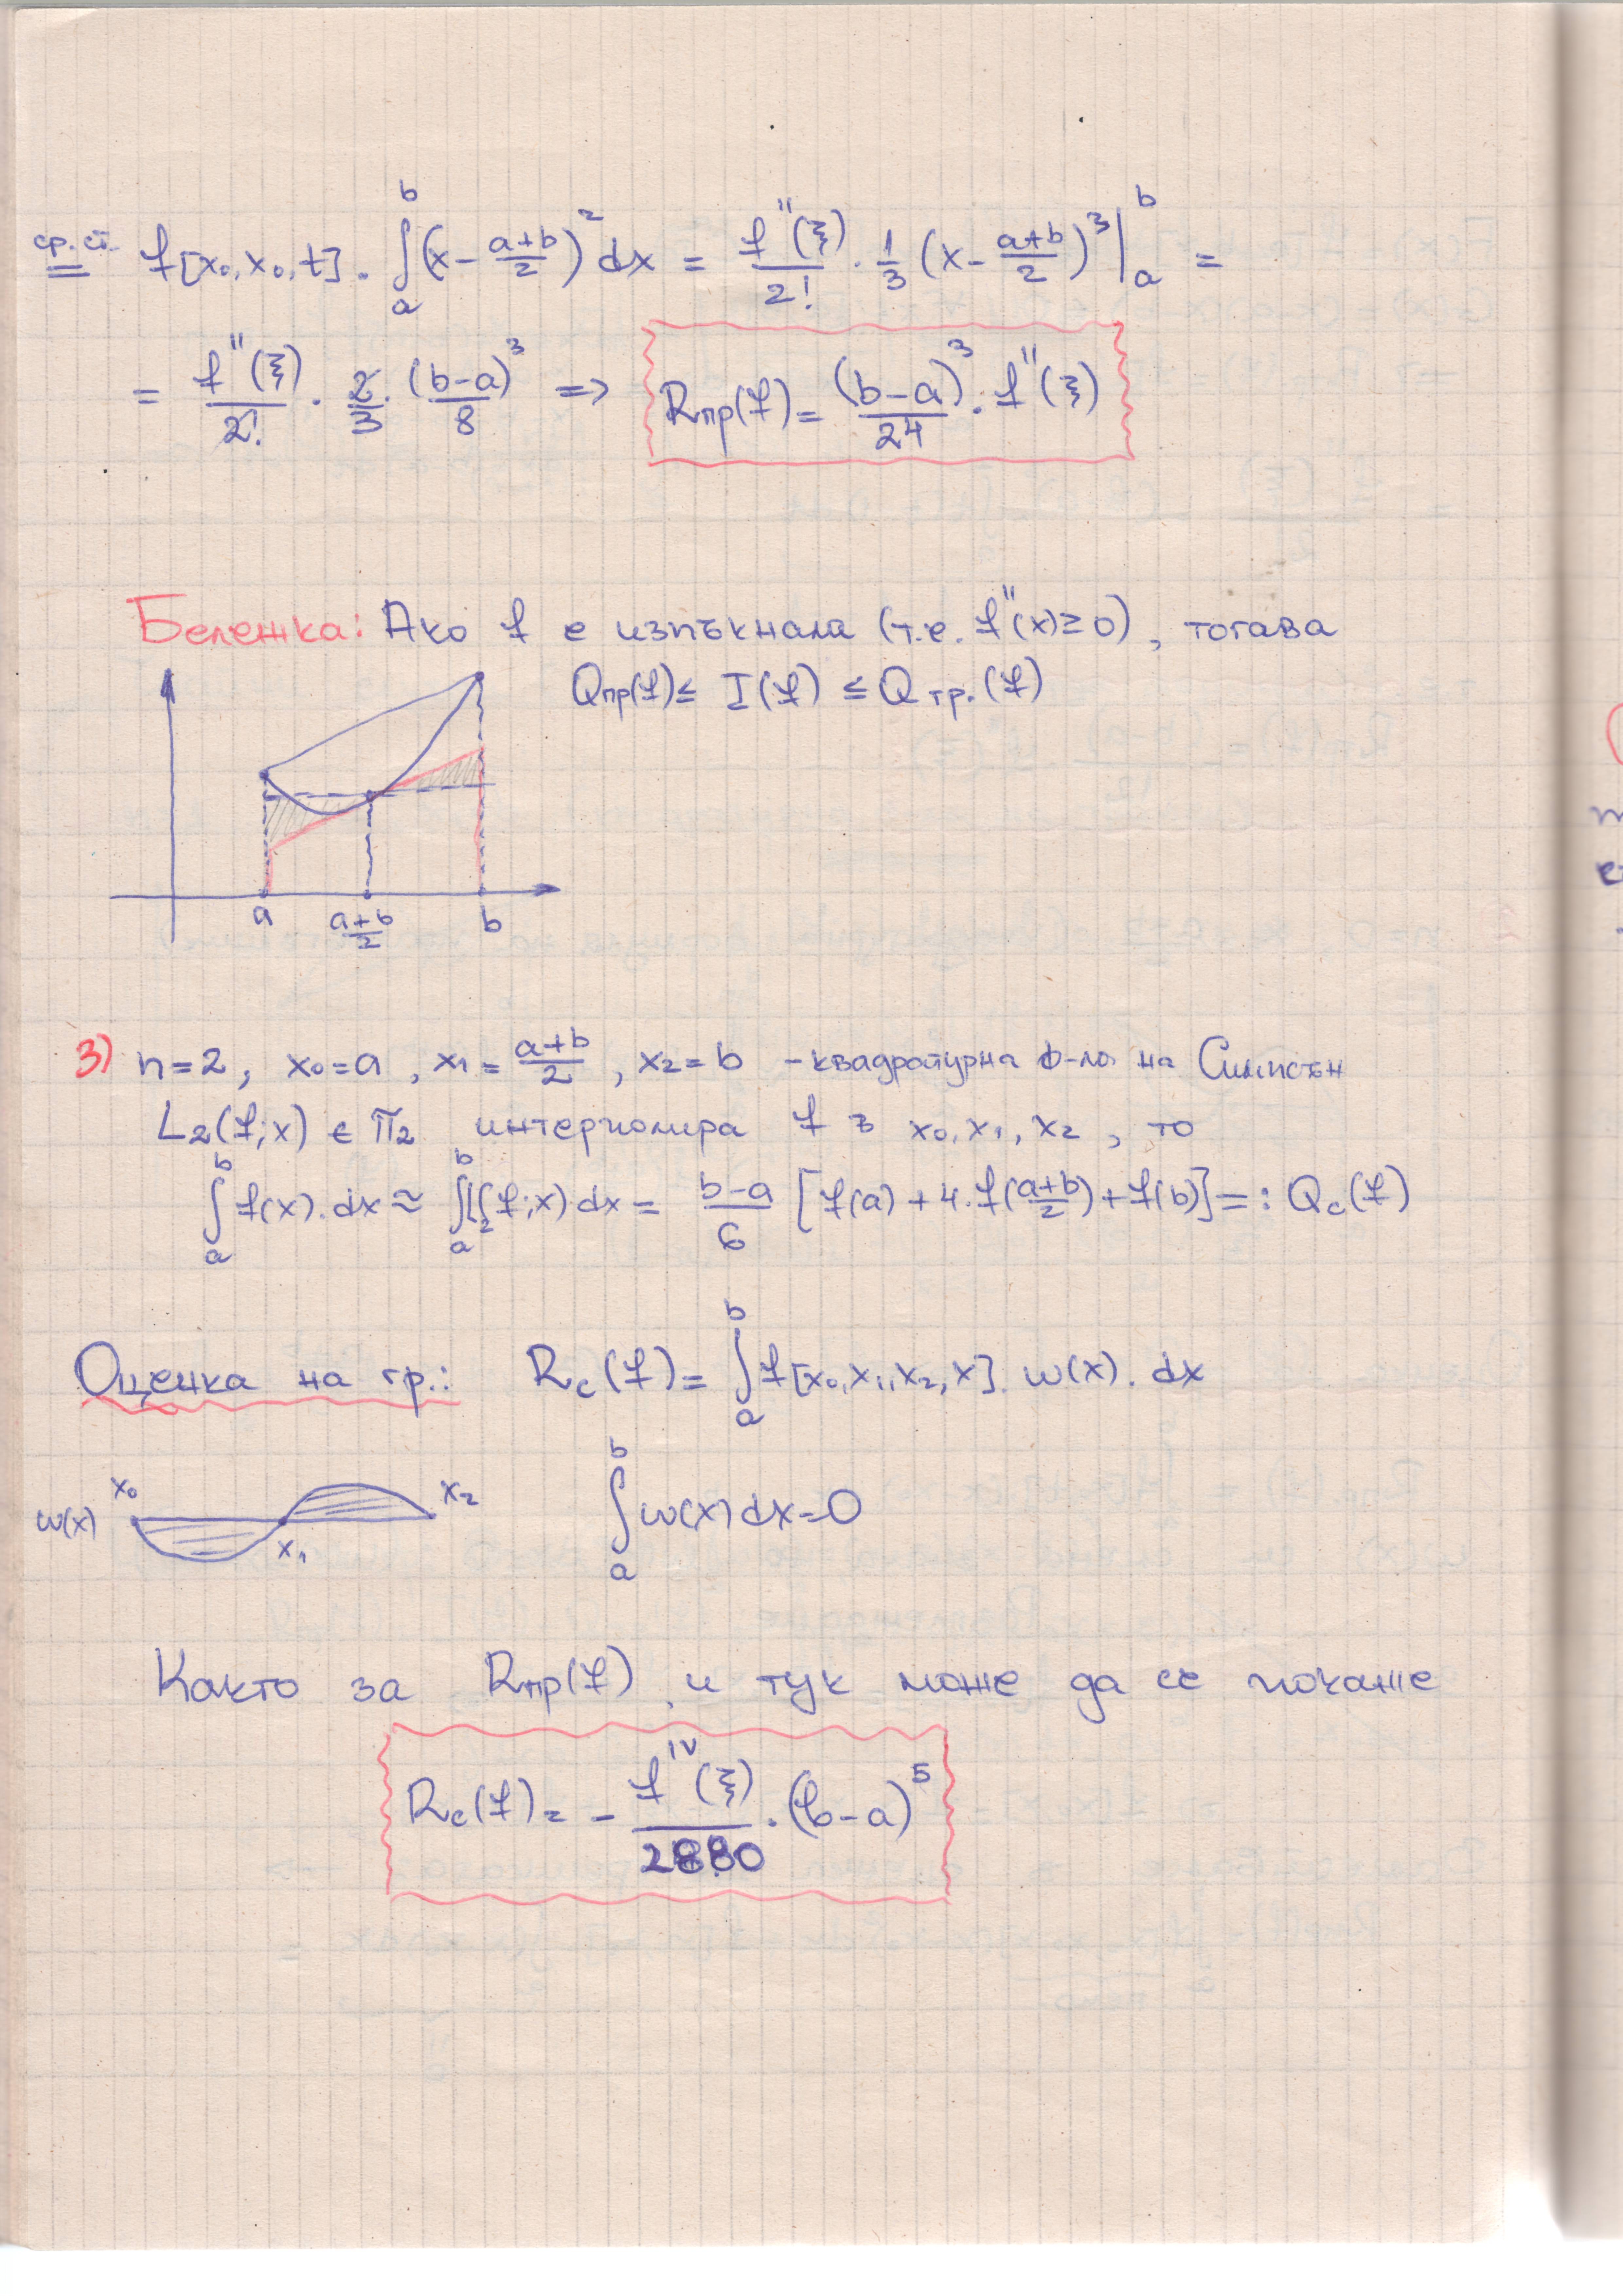 ср. ст. = f[x₀,x₀,t] . ∫ₐᵇ (x - (a+b)/2)² dx = f''(ξ)/2! . 1/3 (x - (a+b)/2)³ |ₐᵇ =
= f''(ξ)/2! . 2/3 . (b-a)³/8 => Rпр(f) = (b-a)³/24 . f''(ξ)
Бележка: Ако f е изпъкнала (т.е. f''(x) ≥ 0), тогава
Qпр(f) ≤ I(f) ≤ Q тр.(f)
a (a+b)/2 b
3) n=2, x₀=a, x₁=(a+b)/2, x₂=b - квадратурна ф-ла на Симпсън
L₂(f;x) ∈ π₂ интерполира f в x₀, x₁, x₂, то
∫ₐᵇ f(x).dx ≈ ∫ₐᵇ L₂(f;x).dx = (b-a)/6 [f(a) + 4.f((a+b)/2) + f(b)] =: Qс(f)
Оценка на гр.: Rс(f) = ∫ₐᵇ f[x₀,x₁,x₂,x] . ω(x) . dx
ω(x) x₀ x₁ x₂ ∫ₐᵇ ω(x) dx = 0
Както за Rпр(f), и тук може да се покаже
Rс(f) = - f^IV(ξ)/2880 . (b-a)⁵